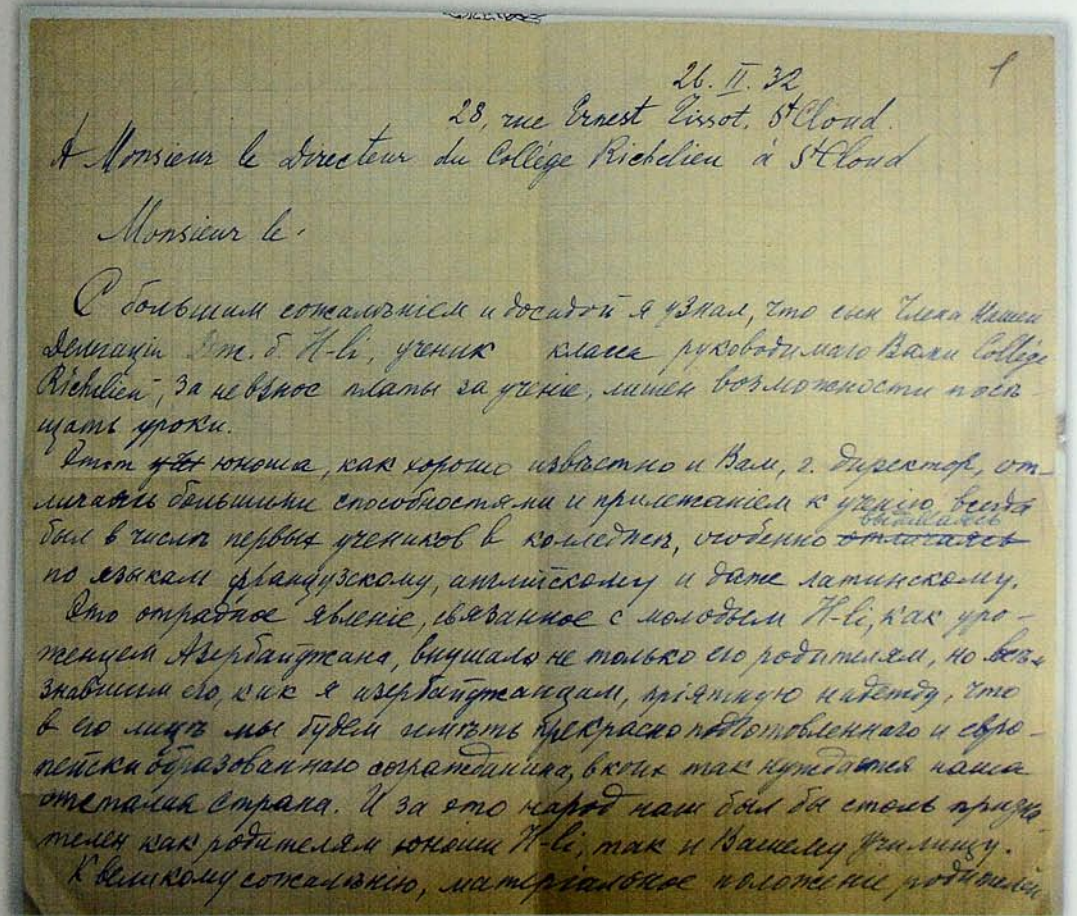 26. II. 32
1
28, rue Ernest Tissot. St Cloud.
A Monsieur le Directeur du Collège Richelieu à St Cloud
Monsieur le.
С большим сожалѣніем и досадой я узнал, что сын Члена Нашей
Делегаціи Дж. б. H-li, ученик класса руководимаго Вами Collège
Richelieu", за невзнос платы за ученіе, лишен возможности посѣ-
щать уроки.
Этот уче юноша, как хорошо извѣстно и Вам, г. Директор, от-
личаясь большими способностями и прилежаніем к ученію, всегда
был в числѣ первых учеников в колледжѣ, особенно отличаясь
выдѣляясь
по языкам французскому, англійскому и даже латинскому.
Это отрадное явленіе, связанное с молодым H-li, как уро-
женцем Азербайджана, внушало не только его родителям, но всѣм
знавшим его, как я азербайджанцам, пріятную надежду, что
в его лицѣ мы будем имѣть прекрасно подготовленнаго и евро-
пейски образованнаго согражданина, в коих так нуждается наша
отсталая страна. И за это народ наш был бы столь призна-
телен как родителям юноши H-li, так и Вашему Училищу.
К великому сожалѣнію, матеріальное положеніе родителей